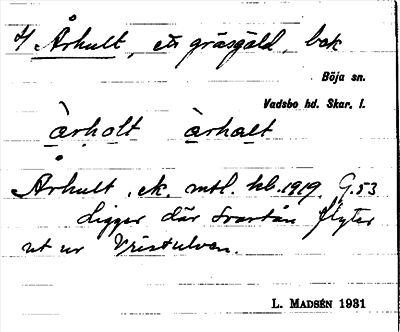 4/ Århult, ett gräsgäld, bok
Böja sn.
Vadsbo hd. Skar. l.
àrholt àrhalt
Århult. ek. mtl. hb. 1919. G. 53
Ligger där Svartån flyter
ut ur Vristulven.
L. MADSÉN 1931